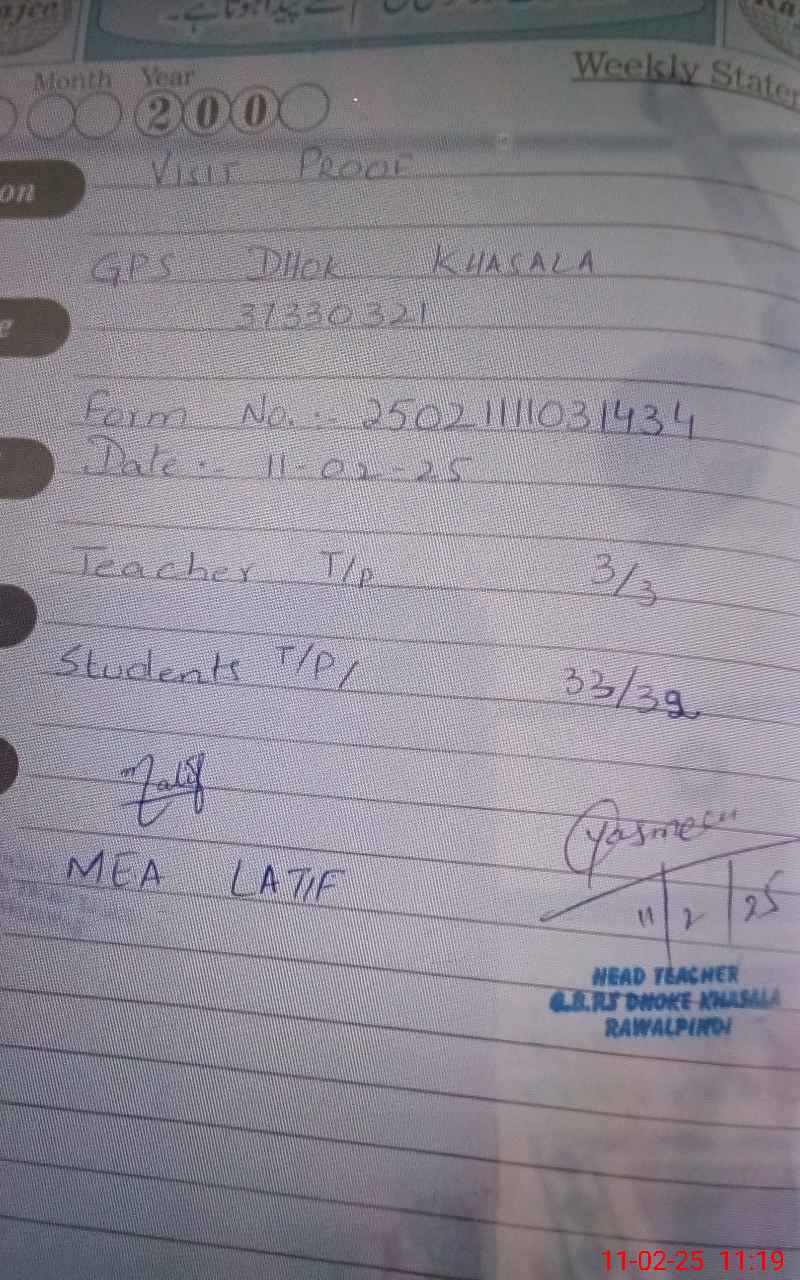 Month Year
200
Weekly
on
VISIT PROOF
GPS DHOK KHASALA
37330321
e
Form No. :- 25021111031434
Date :- 11-02-25
Teacher T/P 3/3
Students T/P/ 33/32
MEA LATIF
Yasmeen
11/2/25
HEAD TEACHER
G.B.P.S DHOKE KHASALA
RAWALPINDI
11-02-25 11:19